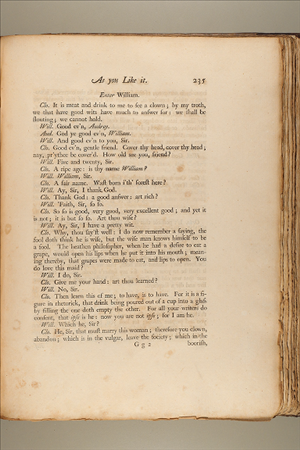 As you Like it. 235
Enter William.
Clo. It is meat and drink to me to see a clown; by my troth,
we that have good wits have much to answer for: we shall be
flouting; we cannot hold.
Will. Good ev'n, Audrey.
Aud. God ye good ev'n, William.
Will. And good ev'n to you, Sir.
Clo. Good ev'n, gentle friend. Cover thy head, cover thy head;
nay, pr'ythee be cover'd. How old are you, friend?
Will. Five and twenty, Sir.
Clo. A ripe age: is thy name William?
Will. William, Sir.
Clo. A fair name. Wast born i'th' forest here?
Will. Ay, Sir, I thank God.
Clo. Thank God: a good answer: art rich?
Will. 'Faith, Sir, so so.
Clo. So so is good, very good, very excellent good; and yet it
is not; it is but so so. Art thou wife?
Will. Ay, Sir, I have a pretty wit.
Clo. Why, thou say'st well: I do now remember a saying, the
fool doth think he is wise, but the wise man knows himself to be
a fool. The heathen philosopher, when he had a desire to eat a
grape, would open his lips when he put it into his mouth; mean-
ing thereby, that grapes were made to eat, and lips to open. You
do love this maid?
Will. I do, Sir.
Clo. Give me your hand: art thou learned?
Will. No, Sir.
Clo. Then learn this of me; to have, is to have. For it is a fi-
gure in rhetorick, that drink being poured out of a cup into a glass
by filling the one doth empty the other. For all your writers do
consent, that ipse is he: now you are not ipse; for I am he.
Will. Which he, Sir?
Clo. He, Sir, that must marry this woman; therefore you clown,
abandon; which is in the vulgar, leave the society; which in the
G g 2 boorish,